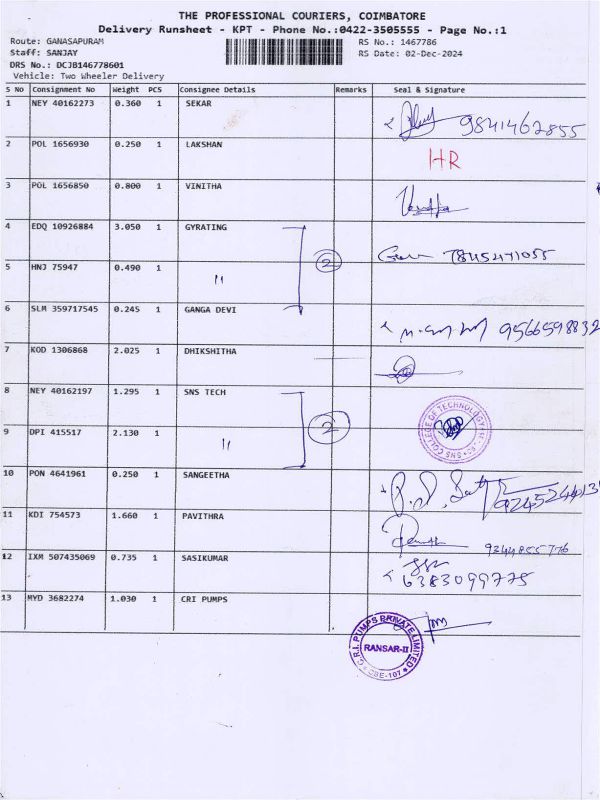 THE PROFESSIONAL COURIERS, COIMBATORE
Delivery Runsheet - KPT - Phone No.:0422-3505555 - Page No.:1
Route: GANASAPURAM RS No.: 1467786
Staff: SANJAY RS Date: 02-Dec-2024
DRS No.: DCJB146778601
Vehicle: Two Wheeler Delivery
S No Consignment No Weight PCS Consignee Details Remarks Seal & Signature
1 NEY 40162273 0.360 1 SEKAR 9841462855
2 POL 1656930 0.250 1 LAKSHAN HR
3 POL 1656850 0.800 1 VINITHA
4 EDQ 10926884 3.050 1 GYRATING
5 HNJ 75947 0.490 1 " 2
6 SLM 359717545 0.245 1 GANGA DEVI 9566598832
7 KOD 1306868 2.025 1 DHIKSHITHA
8 NEY 40162197 1.295 1 SNS TECH
9 DPI 415517 2.130 1 " 2 SNS COLLEGE OF TECHNOLOGY
10 PON 4641961 0.250 1 SANGEETHA
11 KDI 754573 1.660 1 PAVITHRA 9244855776
12 IXM 507435069 0.735 1 SASIKUMAR 6383099775
13 MYD 3682274 1.030 1 CRI PUMPS
C.R.I. PUMPS PRIVATE LIMITED
RANSAR-II
CBE-107